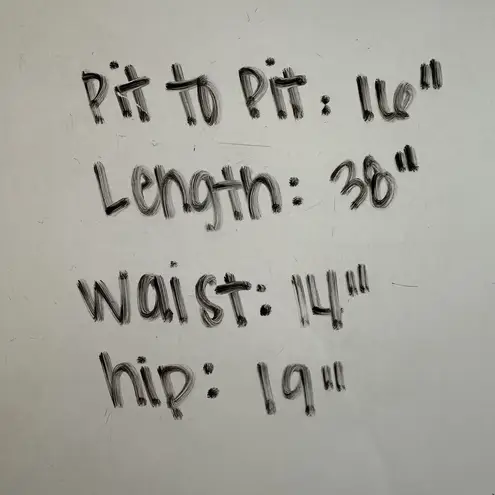 Pit to Pit: 16"
Length: 38"
Waist: 14"
hip: 19"